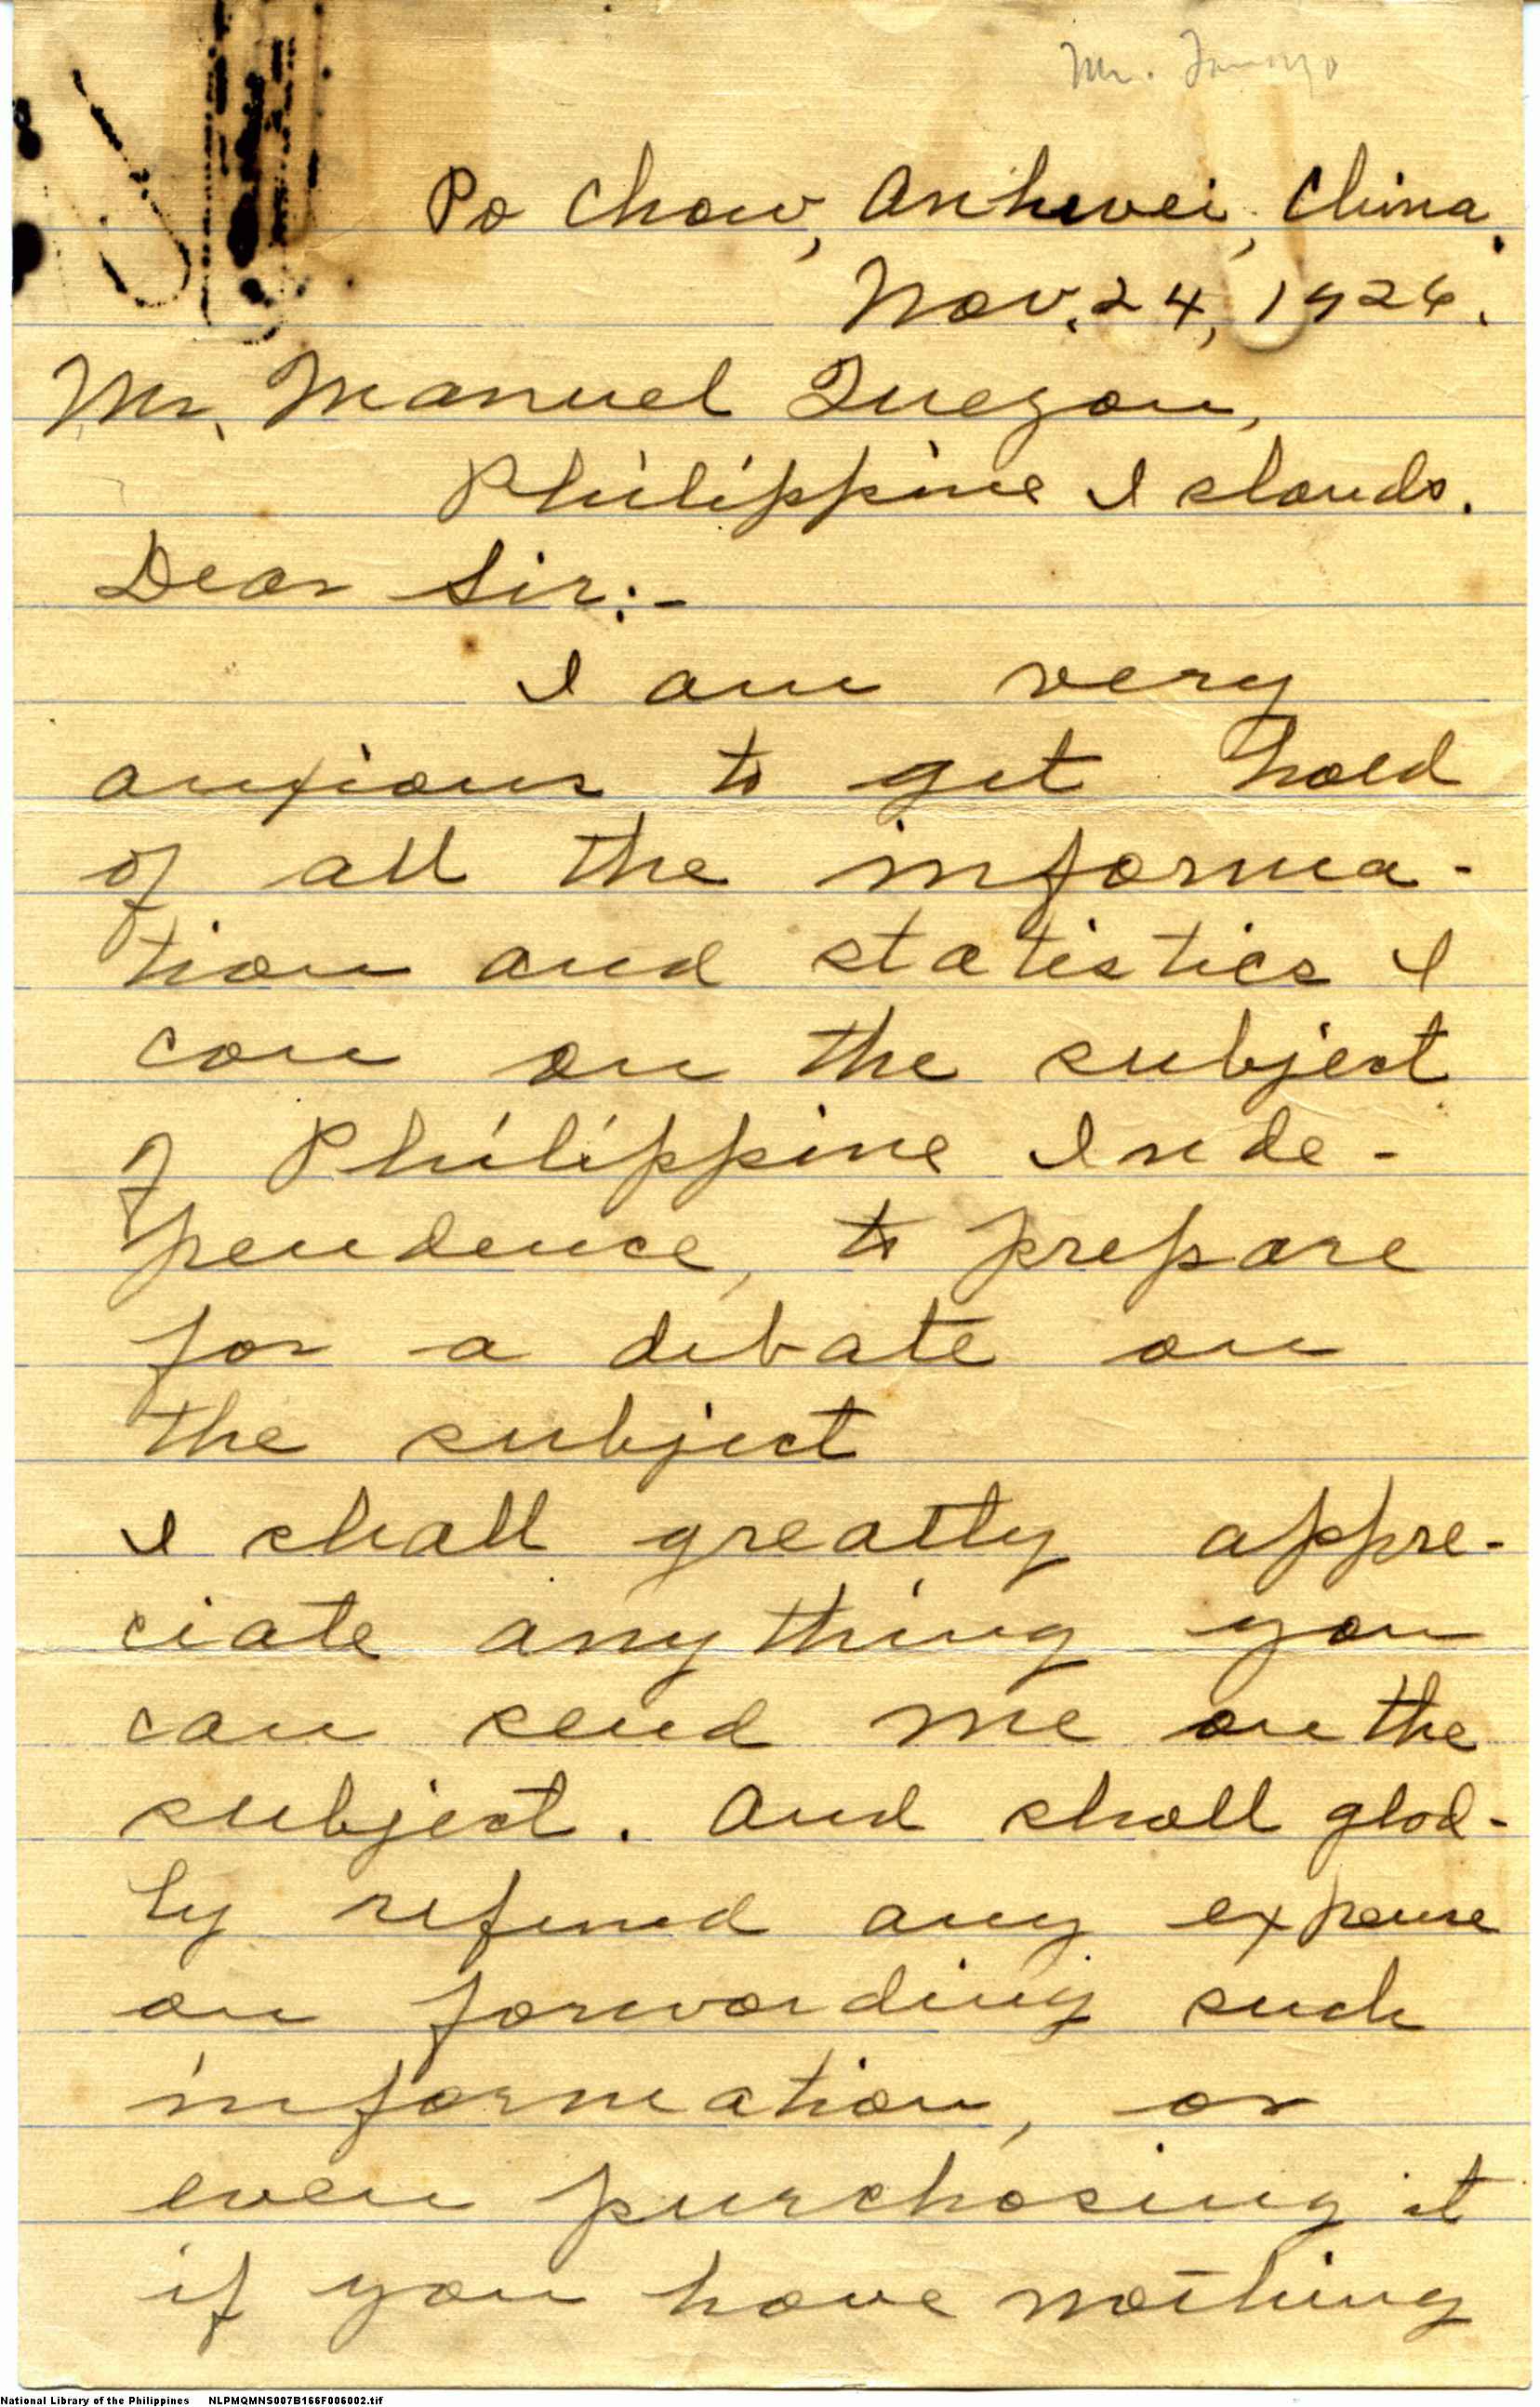 Mr.
Po Chow, Anhwei, China.
Nov. 24, 1926.
Mr. Manuel Quezon,
Philippine Islands.
Dear Sir:-
I am very
anxious to get hold
of all the informa-
tion and statistics I
can on the subject
of Philippine Inde-
pendence, to prepare
for a debate on
the subject
I shall greatly appre-
ciate anything you
can send me on the
subject. And shall glad-
ly refund any expense
on forwarding such
information, or
even purchasing it
if you have nothing
National Library of the Philippines NLPMQMNS007B166F006002.tif